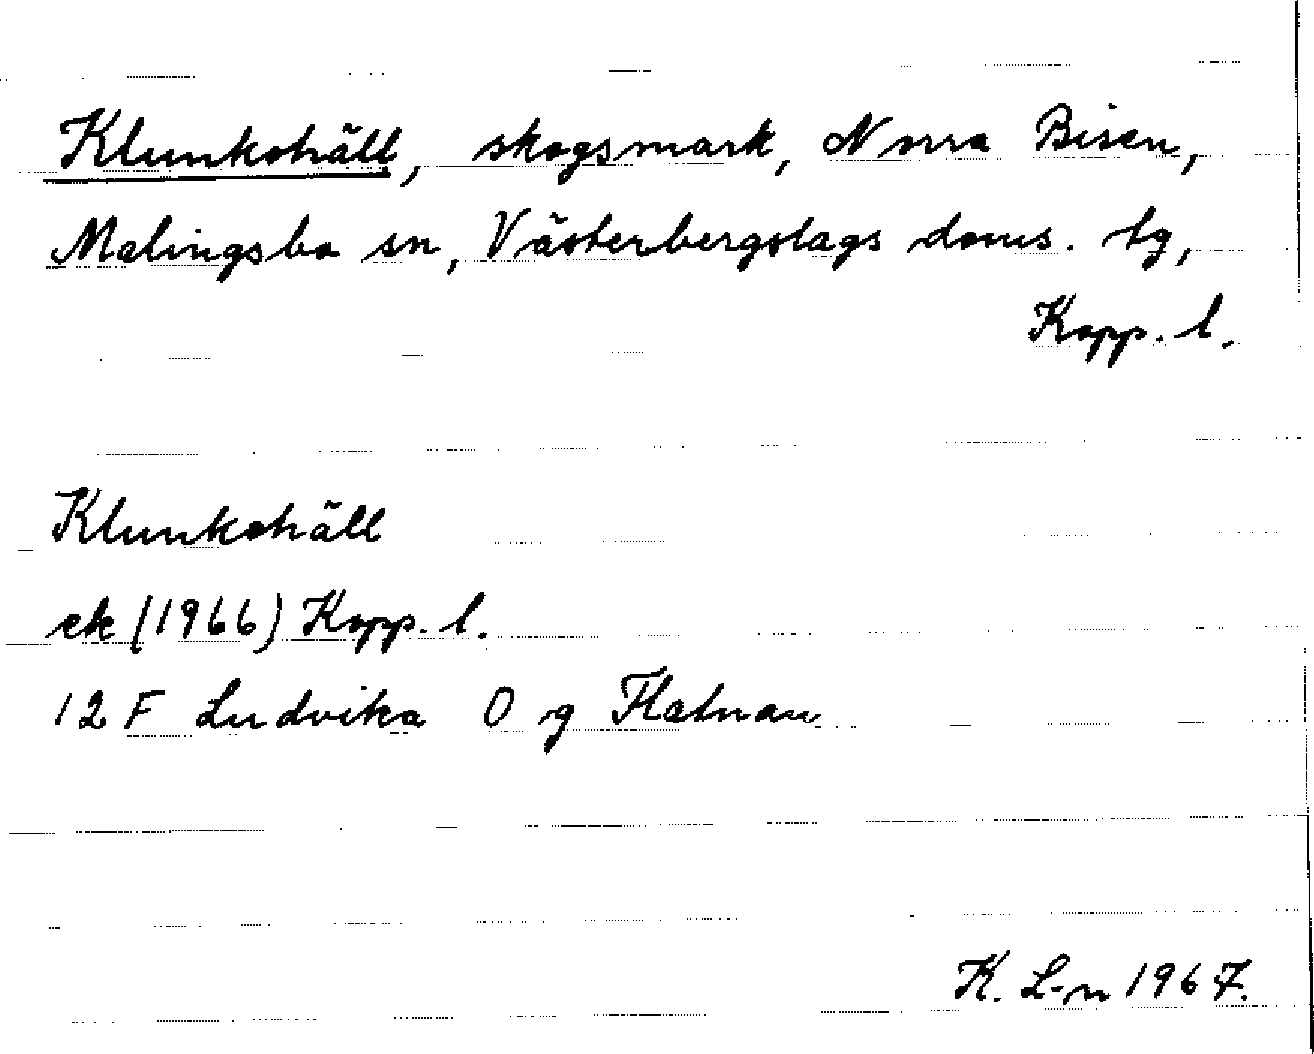 Klunkohäll, skogsmark, Norra Bisen,
Malingsbo sn, Västerbergslags doms. tg,
Kopp. l.
Klunkohäll
ek (1966) Kopp. l.
12 F Ludvika O g Flatnan
K. L-n 1967.